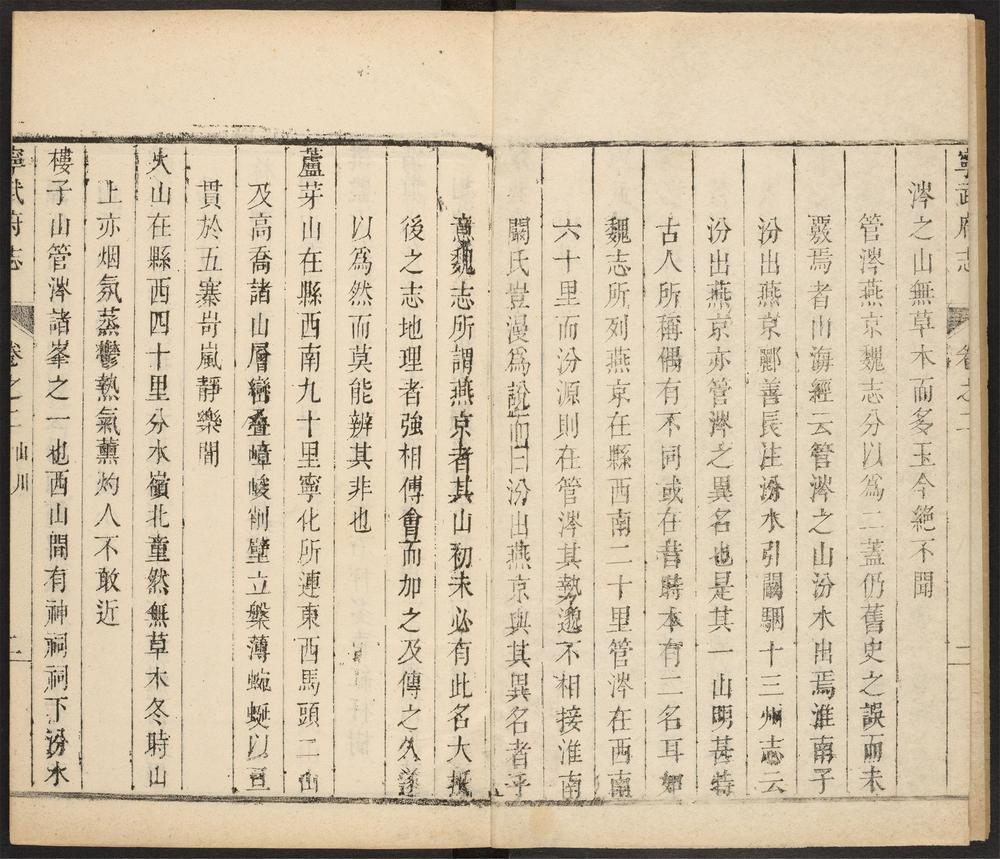 寧武府志 卷之二 二
涔之山無草木而多玉今絶不聞
管涔燕京魏志分以爲二蓋仍舊史之誤而未
覈焉者山海經云管涔之山汾水出焉淮南子
汾出燕京酈善長注汾水引闞駰十三州志云
汾出燕京亦管涔之異名也是其一山明甚特
古人所稱偶有不同或在昔時本有二名耳如
魏志所列燕京在縣西南二十里管涔在西南
六十里而汾源則在管涔其勢邈不相接淮南
闞氏豈漫爲說而曰汾出燕京與其異名者乎
意魏志所謂燕京者其山初未必有此名大抵
後之志地理者強相傅會而加之及傳之久遂
以爲然而莫能辨其非也
蘆芽山在縣西南九十里寧化所連東西馬頭二山
及高喬諸山層巒疊嶂峻削壁立槃薄蜿蜒以亘
貫於五寨岢嵐靜樂閒
火山在縣西四十里分水嶺北童然無草木冬時山
上亦烟氛蒸鬱熱氣薰灼人不敢近
樓子山管涔諸峯之一也西山閒有神祠祠下汾水
寧武府志 卷之二 山川 二